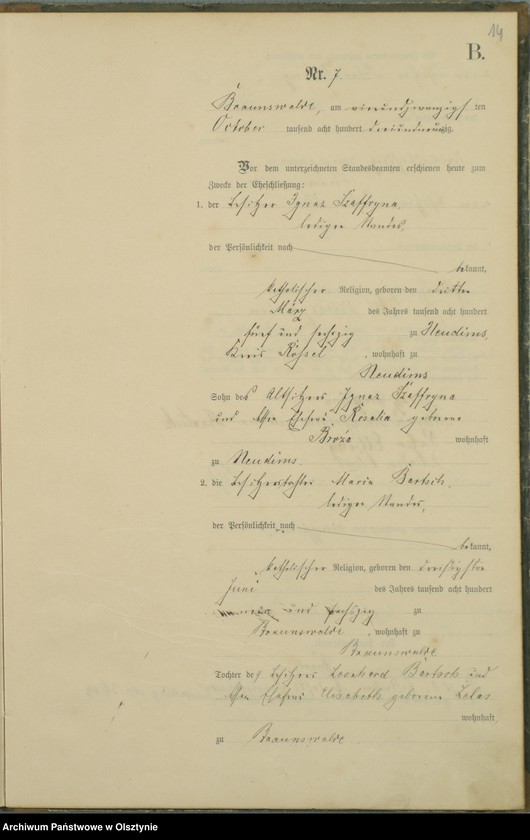 14
B.
Nr. 7.
Braunswalde, am vierundzwanzigsten
October tausend acht hundert dreiundneunzig.
Vor dem unterzeichneten Standesbeamten erschienen heute zum
Zwecke der Eheschließung:
1. der Besitzer Ignaz Szaffryna,
ledigen Standes,
der Persönlichkeit nach
bekannt,
katholischer Religion, geboren den dritten
März des Jahres tausend acht hundert
fünf und sechszig zu Neudims,
Kreis Rössel, wohnhaft zu
Neudims
Sohn des Altsitzers Ignaz Szaffryna
und Ehefrau Rosalia geborene
wohnhaft
zu Neudims.
2. die Besitzertochter Maria Bartsch,
ledigen Standes,
der Persönlichkeit nach
bekannt,
katholischer Religion, geboren den dreißigsten
Juni des Jahres tausend acht hundert
und sechszig zu
Braunswalde, wohnhaft zu
Braunswalde
Tochter des Besitzers Bartsch und
Ehefrau Elisabeth geborene
wohnhaft
zu Braunswalde
Archiwum Państwowe w Olsztynie